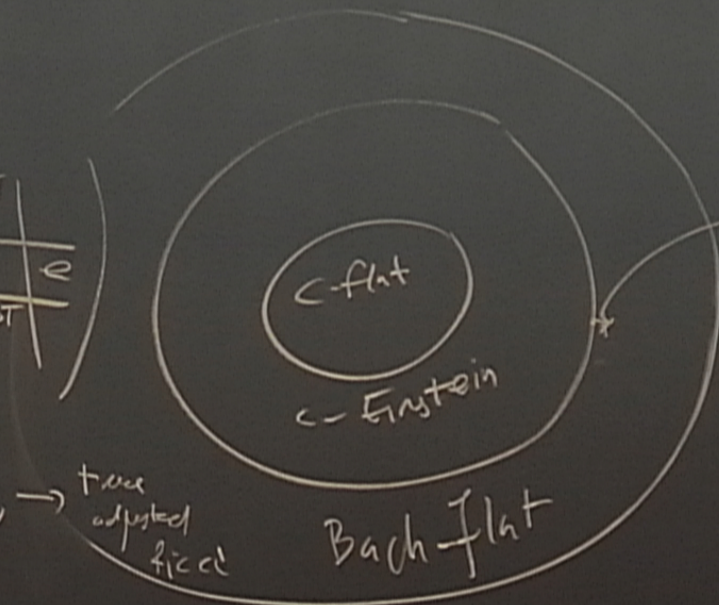 e
T
C-flat
C-Einstein
→ trace
adjusted
Ricci
Bach-flat